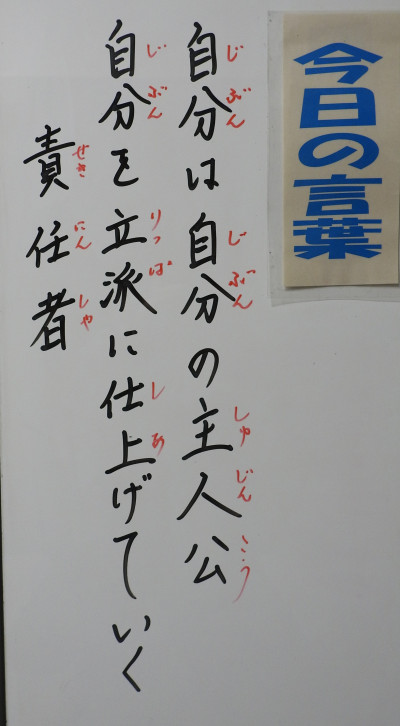 今日の言葉
自分は自分の主人公
じぶん じぶん しゅじんこう
自分を立派に仕上げていく
じぶん りっぱ しあ
責任者
せきにんしゃ